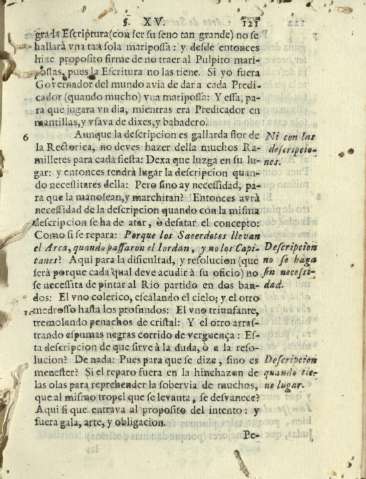 §. XV. 121
grada Escriptura (con ser su seno tan grande) no se
hallarà vna taã sola mariposa: y desde entonces
hize proposito firme de no traer al Pulpito mari-
posas, pues la Escritura no las tiene. Si yo fuera
Governador del mundo avia de dar a cada Predi-
cador (quando mucho) vna mariposa: Y essa, pa-
ra que jugara vn dia, mientras era Predicador en
mantillas, y vsava de dixes, y babadero.
6 Aunque la descripcion es gallarda flor de
la Rectorica, no deves hazer della muchos Ra-
milletes para cada fiesta: Dexa que luzga en su lu-
gar: y entonces tendrà lugar la descripcion quan-
do necessitares della: Pero sino ay necessidad, pa-
ra que la manosean, y marchitan? Entonces avrà
necessidad de la descripcion quando con la misma
descripcion se ha de atar, ò desatar el concepto:
Como si se repara: Porque los Sacerdotes llevan
el Arca, quando passaron el Iordan, y no los Capi-
tanes? Aqui para la dificultad, y resolucion (que
serà porque cada qual deve acudir a su oficio) no
se necessita de pintar al Rio partido en dos ban-
dos: El vno colerico, escalando el cielo; y el otro
medroso hasta los profundos: El vno triunfante,
tremolando penachos de cristal: Y el otro arras-
trando espumas negras corrido de verguença: Es-
ta descripcion de que sirve à la duda, ò a la reso-
lucion? De nada: Pues para que se dize, sino es
menester? Si el reparo fuera en la hinchazon de
las olas para reprehender la sobervia de muchos,
que al mismo tropel que se levanta, se desvanece?
Aqui si que entrava al proposito del intento: y
fuera gala, arte, y obligacion.
Pe-
Ni con las
descripcio-
nes.
Descripcion
no se haga
sin necesi-
dad.
Descripcion
quando tie-
ne lugar.